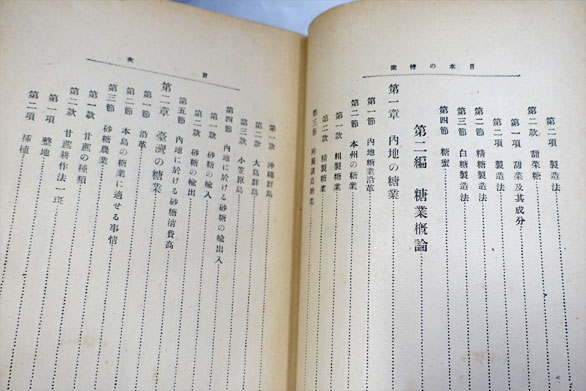 日本の糖業
第二項 製造法
第二款 甜菜糖
第一項 甜菜及其成分
第二項 製造法
第二節 精糖製造法
第三節 白糖製造法
第四節 糖蜜
第二編 糖業概論
第一章 內地の糖業
第一節 內地糖業沿革
第二節 本州の糖業
第一款 粗製糖業
第二款 精製糖業
第三節
目次
第一款 沖繩群島
第二款 大島群島
第三款 小笠原島
第四節 內地に於ける砂糖の輸出入
第一款 砂糖の輸入
第二款 砂糖の輸出
第五節 內地に於ける砂糖消費高
第二章 臺灣の糖業
第一節 沿革
第二節 本島の糖業に適せる事情
第三節 砂糖農業
第一款 甘蔗の種類
第二款 甘蔗耕作法一斑
第一項 整地
第二項 種植